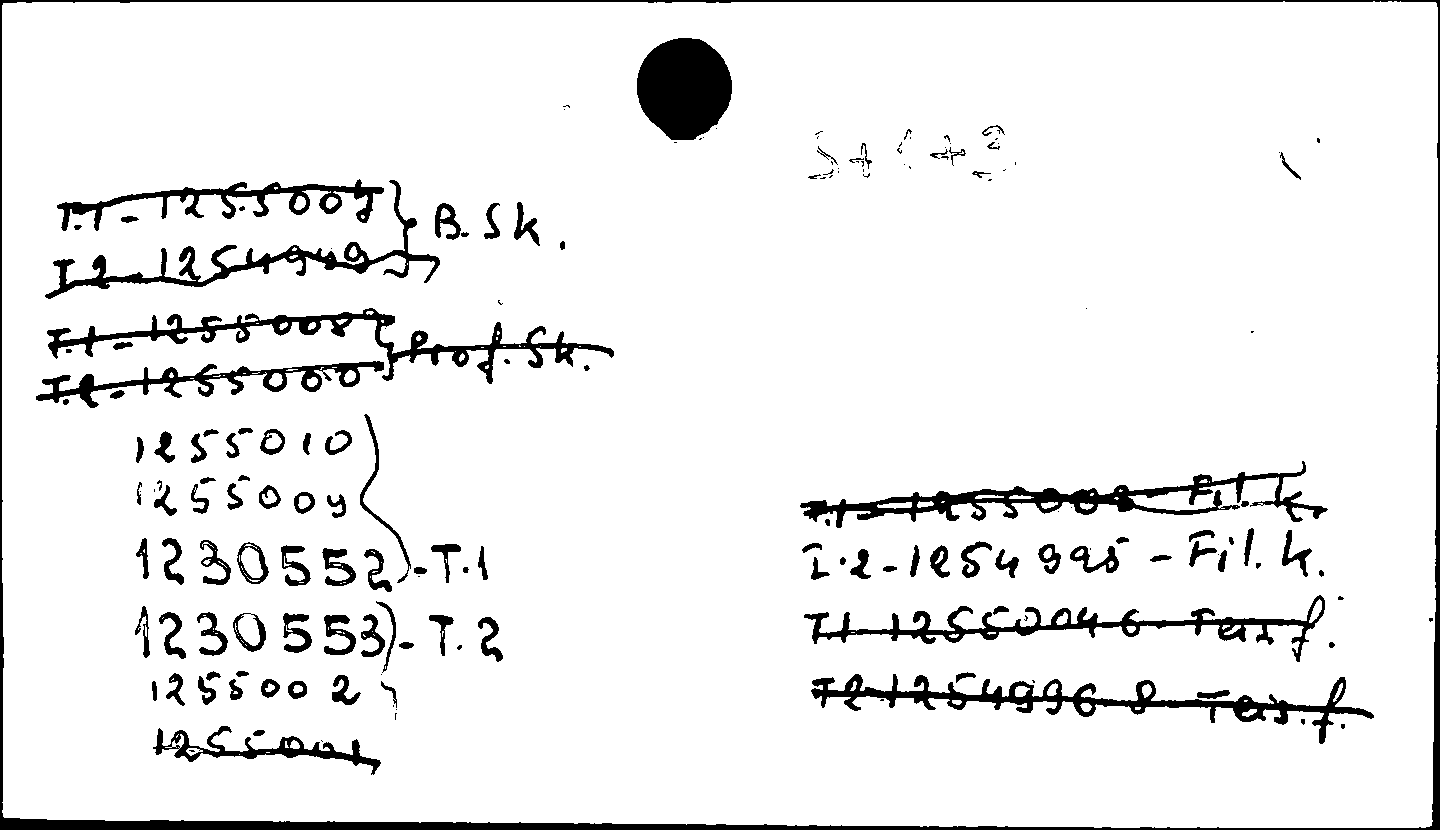 5+1+3
T.1 - 1255007 } B. Sk.
T.2 - 1254999
T.1 - 1255008 } Prof. Sk.
T.2 - 1255000
1255010
1255009
1230552 - T.1
1230553 - T.2
1255002
1255001
T.1 - 1255003 - Fil. k.
T.2 - 1254995 - Fil. k.
T.1 1255004 6 - Teis f.
T.2 - 1254996 8 - Teis. f.